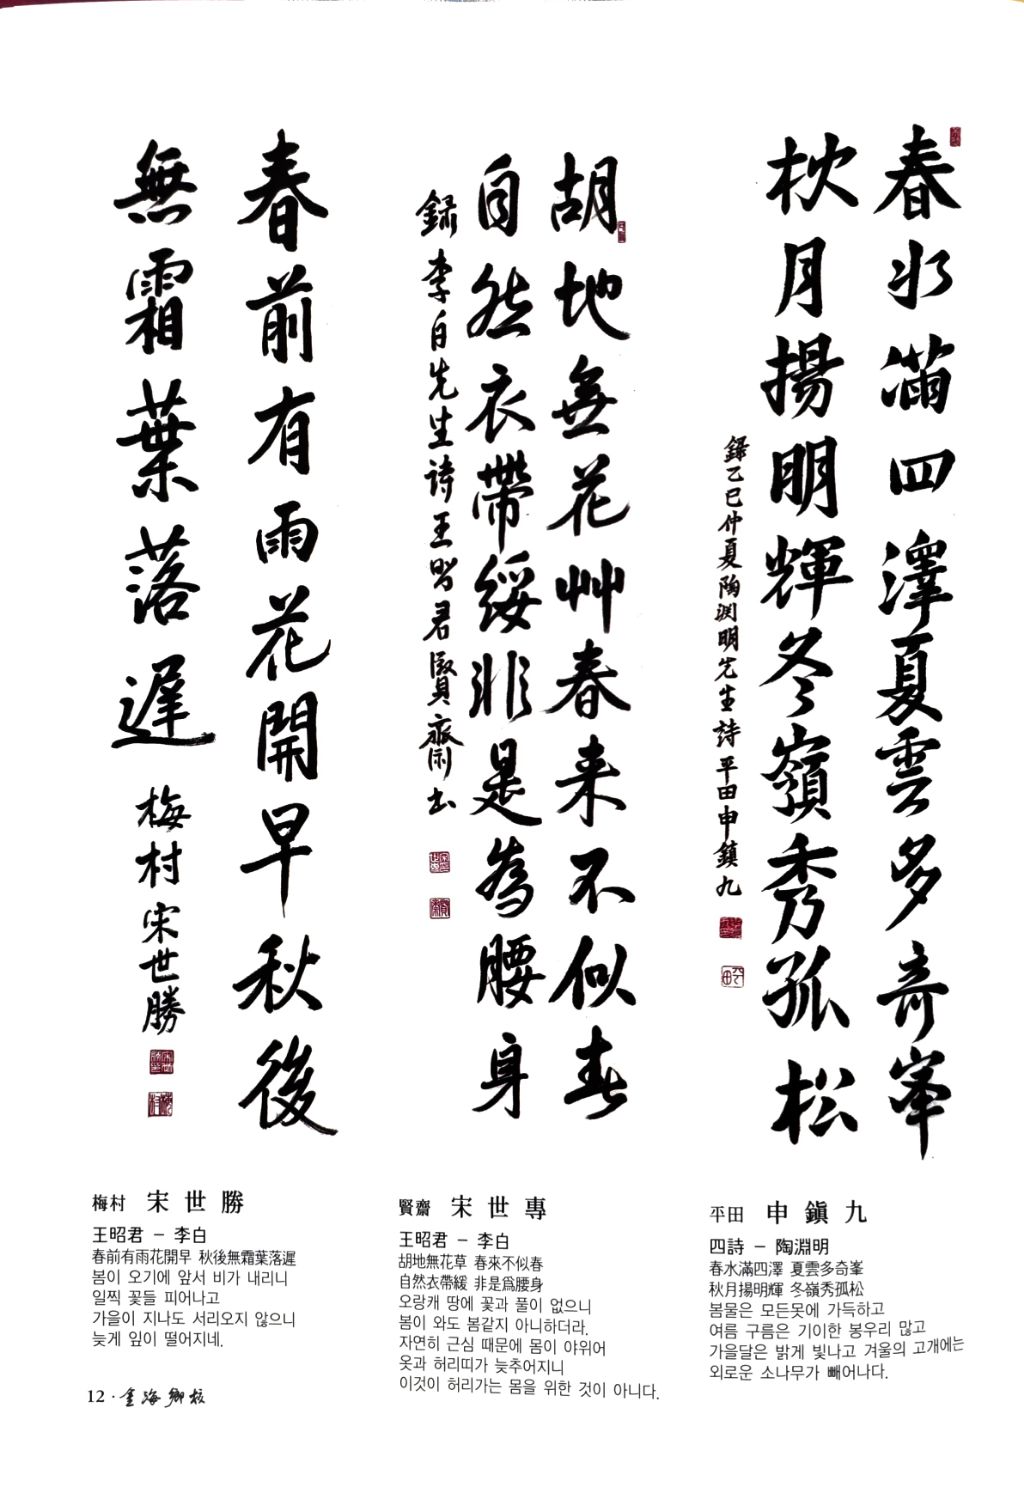 春水滿四澤夏雲多奇峯
秋月揚明輝冬嶺秀孤松
錄乙巳仲夏陶渊明先生詩 平田申鎮九
胡地無花艸春来不似春
自然衣帶綬非是為腰身
録李白先生詩王昭君賢齋宋世專書
春前有雨花開早秋後
無霜葉落遲
梅村宋世勝
梅村 宋世勝
王昭君 – 李白
春前有雨花開早 秋後無霜葉落遲
봄이 오기에 앞서 비가 내리니
일찍 꽃들 피어나고
가을이 지나도 서리오지 않으니
늦게 잎이 떨어지네.
賢齋 宋世專
王昭君 – 李白
胡地無花草 春來不似春
自然衣帶緩 非是爲腰身
오랑캐 땅에 꽃과 풀이 없으니
봄이 와도 봄같지 아니하더라.
자연히 근심 때문에 몸이 야위어
옷과 허리띠가 늦추어지니
이것이 허리가는 몸을 위한 것이 아니다.
平田 申鎭九
四詩 – 陶淵明
春水滿四澤 夏雲多奇峯
秋月揚明輝 冬嶺秀孤松
봄물은 모든못에 가득하고
여름 구름은 기이한 봉우리 많고
가을달은 밝게 빛나고 겨울의 고개에는
외로운 소나무가 빼어나다.
12 · 金海鄕校